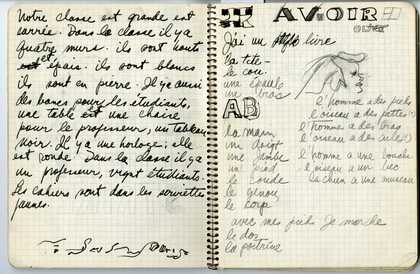 Notre classe est grande est
carrée. Dans la classe il y a
quatre murs. ils sont hauts
et épais. ils sont blancs
ils sont en pierre. Il y a aussi
des bancs pour les étudiants,
une table est une chaise
pour le professeur, un tableau
noir. Il y a une horloge; elle
est ronde. Dans la classe il y a
un professeur, vingt étudiants.
Les cahiers sont dans les serviettes
jaunes.
AVOIR
J'ai un livre
la tête
le cou
une épaule
un bras
AB
la main
un doigt
une jambe
un pied
le coude
le genou
le corps
l'homme a des pieds
l'oiseau a des pattes
l'homme a des bras
l'oiseau a des ailes
l'homme a une bouche
l'oiseau a un bec
le chien a une museau
avec mes pieds Je marche
le dos
la poitrine